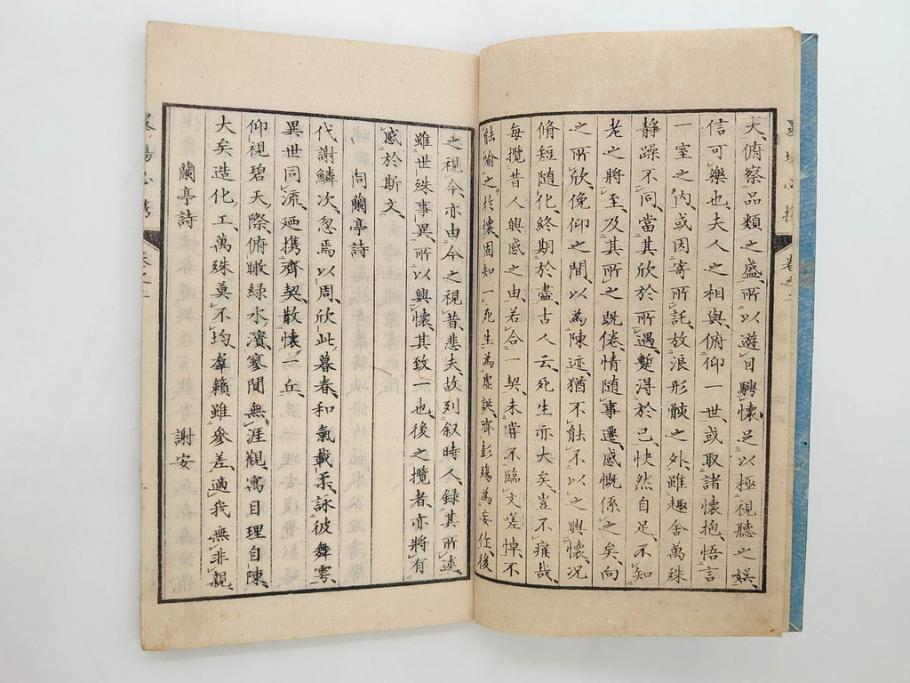 墨場必携 卷之二
大、俯察品類之盛、所以遊目騁懷、足以極視聽之娯、
信可樂也、夫人之相與、俯仰一世、或取諸懷抱、悟言
一室之内、或因寄所託、放浪形骸之外、雖趣舍萬殊
靜躁不同、當其欣於所遇、蹔得於己、怏然自足、不知
老之將至、及其所之既倦、情隨事遷、感慨係之矣、向
之所欣、俛仰之間、以為陳迹、猶不能不以之興懷、況
脩短隨化、終期於盡、古人云、死生亦大矣、豈不痛哉
每攬昔人興感之由、若合一契、未嘗不臨文嗟悼、不
能喻之於懷、固知一死生為虛誕、齊彭殤為妄作、後
之視今、亦由今之視昔、悲夫、故列叙時人、録其所述、
雖世殊事異、所以興懷、其致一也、後之攬者、亦將有
感於斯文、
同蘭亭詩
代謝鱗次、忽焉以周、欣此暮春、和氣載柔、詠彼舞雩、
異世同流、廼携齊契、散懷一丘、
仰視碧天際、俯瞰緑水濱、寥閴無涯觀、寓目理自陳、
大矣造化工、萬殊莫不均、羣籟雖參差、適我無非親、
蘭亭詩 謝安
墨場必携 卷之二